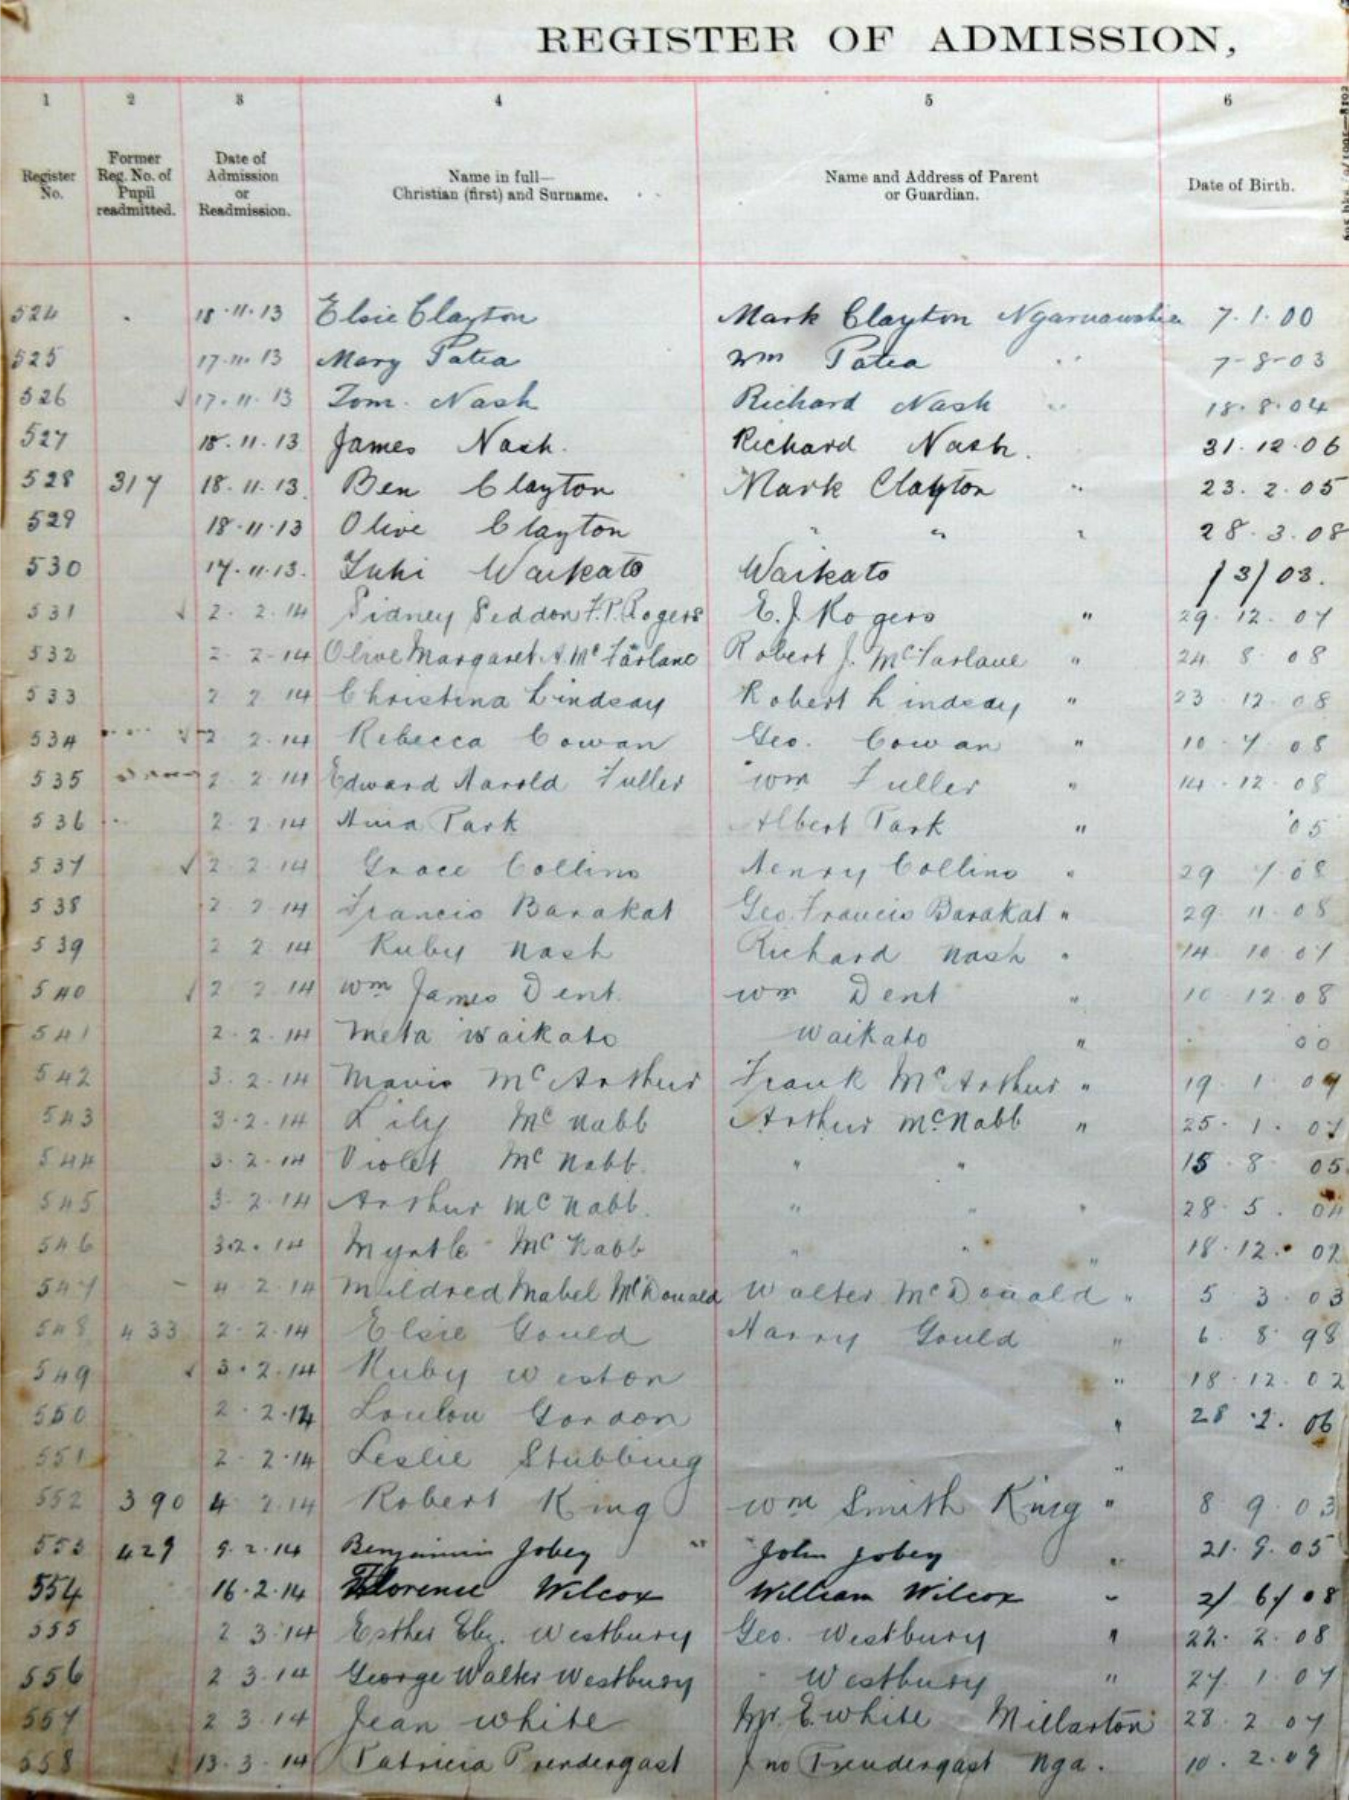 REGISTER OF ADMISSION,
1 2 3 4 5 6
Register No. Former Reg. No. of Pupil readmitted. Date of Admission or Readmission. Name in full— Christian (first) and Surname. Name and Address of Parent or Guardian. Date of Birth.
524 18·11·13 Elsie Clayton Mark Clayton Ngaruawahia 7·1·00
525 17·11·13 Mary Patea Wm Patea " 7-8-03
526 √ 17·11·13 Tom Nash Richard Nash " 18·8·04
527 18·11·13 James Nash. Richard Nash. 31·12·06
528 317 18·11·13. Ben Clayton Mark Clayton " 23.2.05
529 18·11·13 Olive Clayton " " " 28.3.08
530 17·11·13. Tuhi Waikato Waikato /3/03.
531 √ 2.2.14 Sidney Seddon F.P. Rogers E.J. Rogers " 29.12.07
532 2 2-14 Olive Margaret A. McFarlane Robert J. McFarlane " 24 8 08
533 2 2 14 Christina Lindsay Robert Lindsay " 23 12 08
534 √ 2 2.14 Rebecca Cowan Geo. Cowan " 10·7 08
535 2 2 14 Edward Harold Fuller Wm Fuller " 14·12·08
536 2 2 14 Park Albert Park " '05
537 √ 2 2 14 Grace Collins Henry Collins " 29 7·08
538 2 2 14 Francis Barakat Geo. Francis Barakat " 29. 11·08
539 2 2 14 Ruby Nash Richard Nash " 14 10 07
540 √ 2 2 14 Wm James Dent. Wm Dent " 10 12.08
541 2·2·14 Meta Waikato Waikato " 00
542 3.2.14 Mavis McArthur Frank McArthur " 19 1 09
543 3·2·14 Lily McNabb Arthur McNabb " 25·1·07
544 3·2·14 Violet McNabb. " " 15·8 05
545 3·2·14 Arthur McNabb. " " " 28·5. 04
546 3·2·14 Myrtle McNabb " " " 18·12· 02
547 - 4 2.14 Mildred Mabel McDonald Walter McDonald " 5 3·03
548 433 2·2·14 Elsie Gould Harry Gould " 6 8 98
549 √ 3·2·14 Ruby Weston " 18·12·02
550 2·2·14 Loulou Gordon " 28·2·06
551 2·2·14 Leslie Stubbing "
552 390 4 2.14 Robert King Wm Smith King " 8 9 03
553 429 9·2·14 Benjamin Jobey " John Jobey " 21·9·05
554 16·2·14 Florence Wilcox William Wilcox " 2/6/08
555 2 3·14 Esther Eliz. Westbury Geo. Westbury " 22·2·08
556 2 3·14 George Walter Westbury " Westbury " 27 1 07
557 2 3·14 Jean White Mr. E. White Millarton 28 2 07
558 √ 13·3·14 Patricia Prendergast Jno Prendergast Nga. 10·2·09